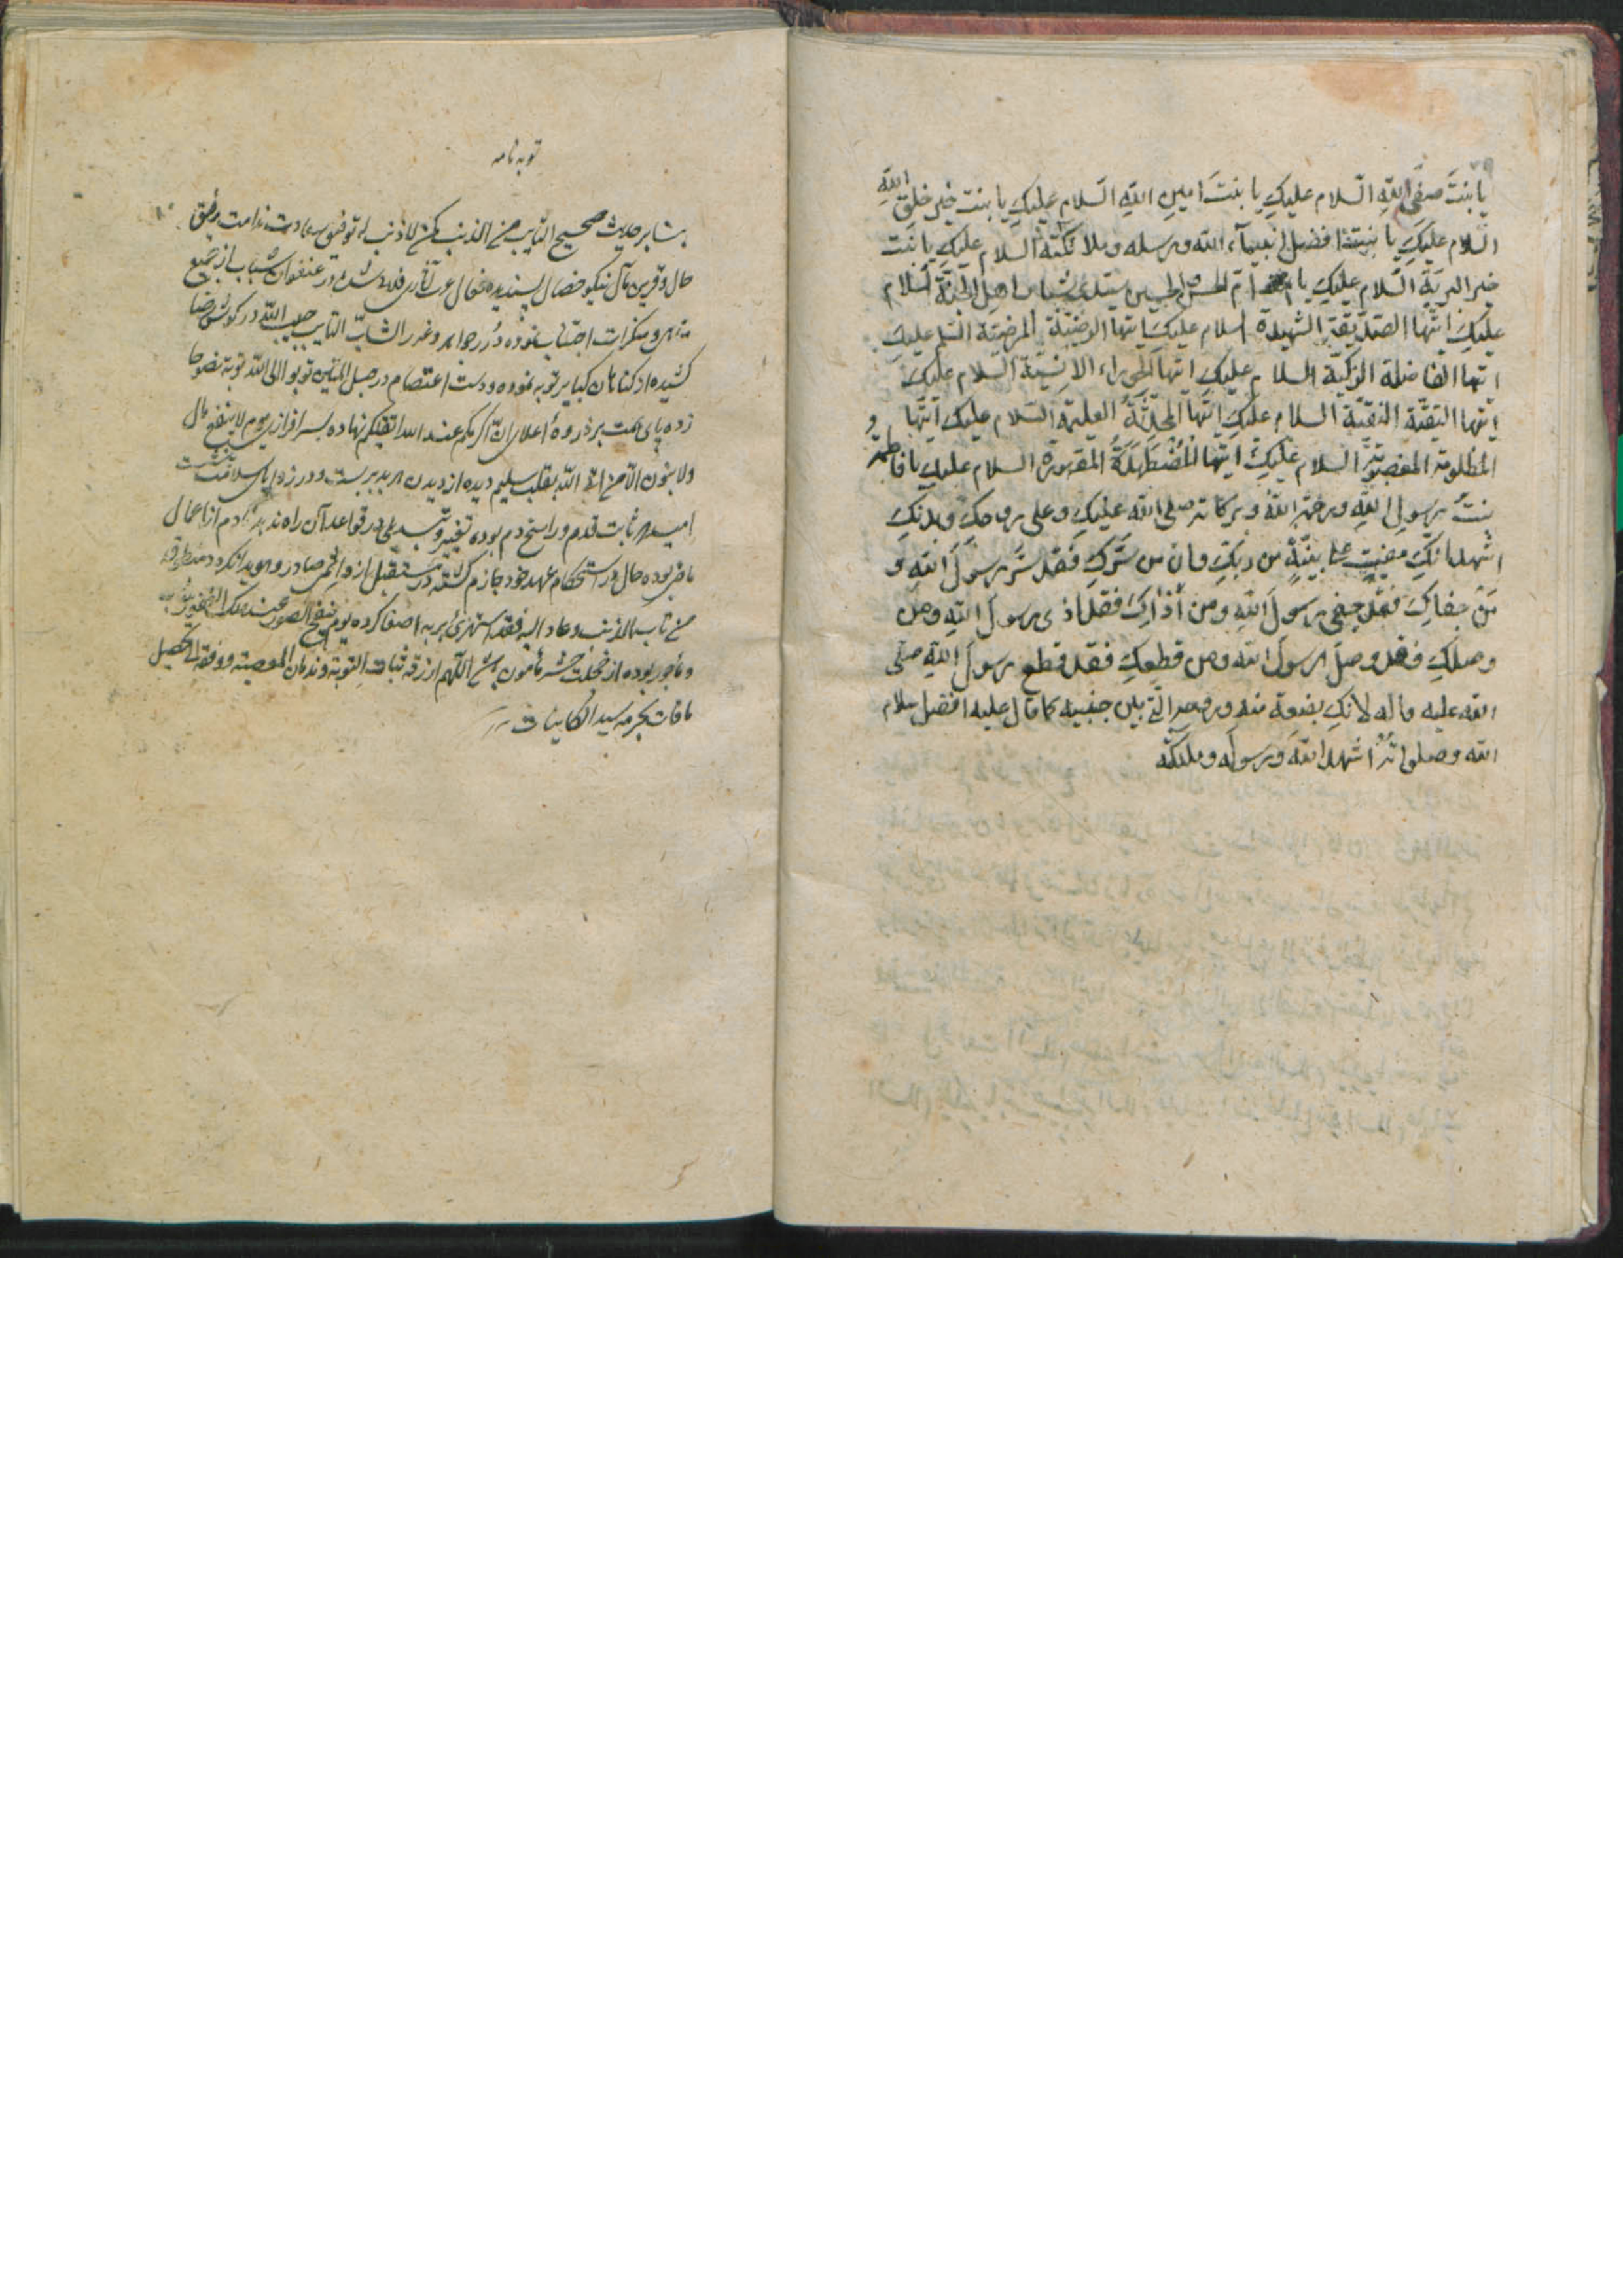 يا بنتَ صفىِّ اللهِ السّلام عليكِ يا بنتَ امينِ اللهِ السّلام عليكِ يا بنت خير خلقِ اللهِ
السلام عليكِ يا بنت افضل انبيآء الله ورسله وملائكته السلام عليكِ يا بنت
خير البريّة السّلام عليكِ يا امّ الحسن والحسين سيّدى شباب اهل الجنّة السلام
عليكِ ايّتها الصدّيقة الشهيدة السلام عليكِ ايتها الرضيّة المرضيّة السلم عليكِ
ايتها الفاضلة الزكيّة السلام عليكِ ايتها الحوراء الانسيّة السّلام عليكِ
ايّتها التقيّة النقيّة السلام عليكِ ايّتها المحدَّثَةُ العليمة السّلام عليك ايّتها
المظلومة المغصوبة السلام عليكِ ايتها المُضْطَهَدَةُ المقهورة السلام عليكِ يا فاطمة
بنتَ رسولِ اللهِ ورحمة اللهُ وبركاته صلى الله عليكِ وعلى روحكِ وبدنكِ
اشهد انّكِ مضيتِ على بيّنةٍ من ربّكِ وان من سَرَّكِ فقد سَرَّ رسولَ اللهِ و
مَنْ جفاكِ فقد جفى رسولَ اللهِ ومن أذاكِ فقد اذى رسولَ اللهِ ومن
وصلكِ فقد وصلَ رسولَ الله ومن قطعكِ فقد قطع رسولَ اللهِ صلى
الله عليه واله لانّكِ بضعة منه وروحه الّتى بين جنبيه كما قال عليه افضل سلام
الله وصلواته اُشهد اللهَ ورسوله وملئكته
توبه نامه
بنا بر حديث صحيح التايب من الذنب كمن لا ذنب له توفيق سعادت ندامت رفيق
حال وقرين مآل نيكو خصال پسنديده فعال شده در عنفوان شباب از جميع
مناهى ومنكرات اجتناب نموده دُرر جواهر وغرر الشابّ التايب حبيب الله در گوش رضا
كشيده از گناهان كباير توبه نموده ودست اعتصام در حبل المتين توبوا الى الله توبة نصوحا
زده پاى همت بر ذروهٔ اعلاى انّ اكرمكم عند الله اتقيكم نهاده بسرافرازى يوم لا ينفع مال
ولا بنون الّا من اتى الله بقلب سليم ديده از ديدن
اميد ثابت قدم وراسخ دم بوده تغيير وتبديلى در قواعد آن راه ندهد نادم از اعمال
ماضى بوده حال در استحكام عهد خود جازم گشته در مستقبل از و امرى صادر وهويدا نگردد
من تاب الذنب وعاد اليه فقد استهزئ بربه اصغا كرده يوم ينفخ فى الصور عند ملك الغفور
وماجور بوده از خجلت حشر مأمون اللّهم ارزقه ثبات التوبة وندمان المعصية ووفقه الى تحصيل
مافات بحرمة سيد الكاينات